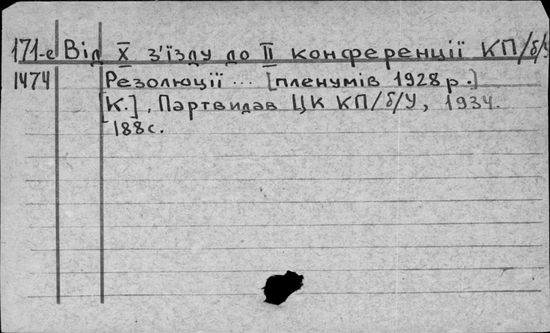 171-е Від X з'їзду до II конференції КП/б/У
1474 Резолюції ... [пленумів 1928 р.]
[К.], Партвидав ЦК КП/б/У, 1934.
188с.